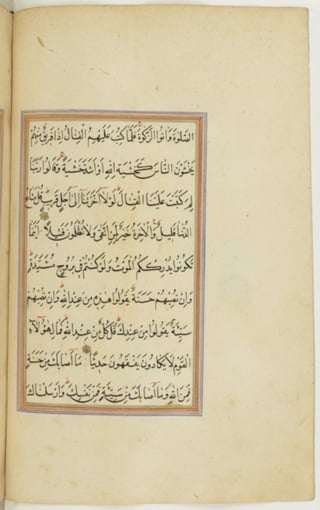 الصلوة واتوا الزكوة فلما كتب عليهم القتال اذا فريق منهم
يخشون الناس كخشية الله او اشد خشية وقالوا ربنا
لم كتبت علينا القتال لولا اخرتنا الى اجل قريب قل متاع
الدنيا قليل والاخرة خير لمن اتقى ولا تظلمون فتيلا اينما
تكونوا يدرككم الموت ولو كنتم في بروج مشيدة
وان تصبهم حسنة يقولوا هذه من عند الله وان تصبهم
سيئة يقولوا من عندك قل كل من عند الله فمال هؤلاء
القوم لا يكادون يفقهون حديثا ما اصابك من حسنة
فمن الله وما اصابك من سيئة فمن نفسك وارسلناك